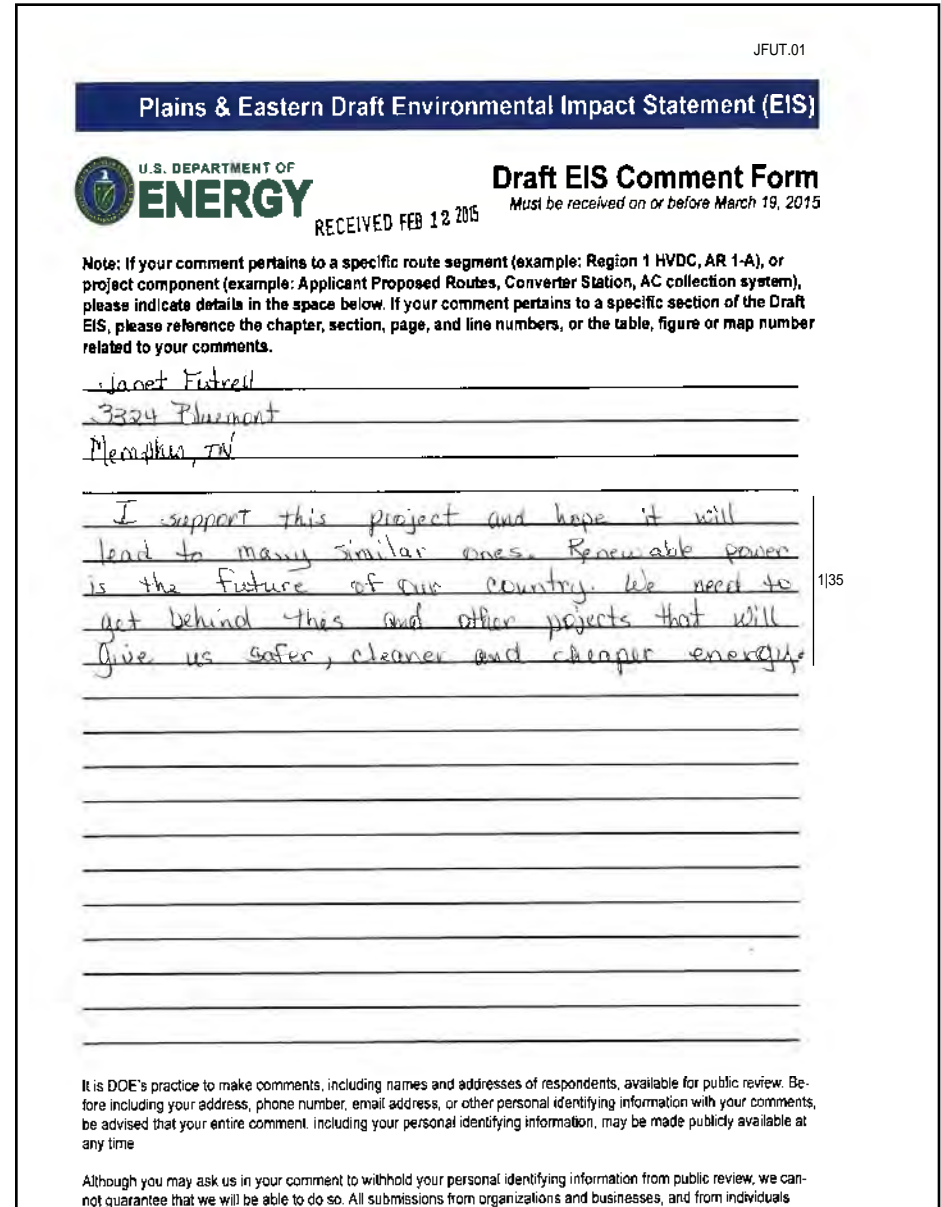 JFUT.01
Plains & Eastern Draft Environmental Impact Statement (EIS)
U.S. DEPARTMENT OF
ENERGY
RECEIVED FEB 12 2015
Draft EIS Comment Form
Must be received on or before March 19, 2015
Note: If your comment pertains to a specific route segment (example: Region 1 HVDC, AR 1-A), or
project component (example: Applicant Proposed Routes, Converter Station, AC collection system),
please indicate details in the space below. If your comment pertains to a specific section of the Draft
EIS, please reference the chapter, section, page, and line numbers, or the table, figure or map number
related to your comments.
Janet Futrell
3324 Bluemont
Memphis, TN
I support this project and hope it will
lead to many similar ones. Renewable power
is the future of our country. We need to
get behind this and other pojects that will
give us safer, cleaner and cheaper energy.
1|35
It is DOE's practice to make comments, including names and addresses of respondents, available for public review. Be-
fore including your address, phone number, email address, or other personal identifying information with your comments,
be advised that your entire comment, including your personal identifying information, may be made publicly available at
any time
Although you may ask us in your comment to withhold your personal identifying information from public review, we can-
not guarantee that we will be able to do so. All submissions from organizations and businesses, and from individuals